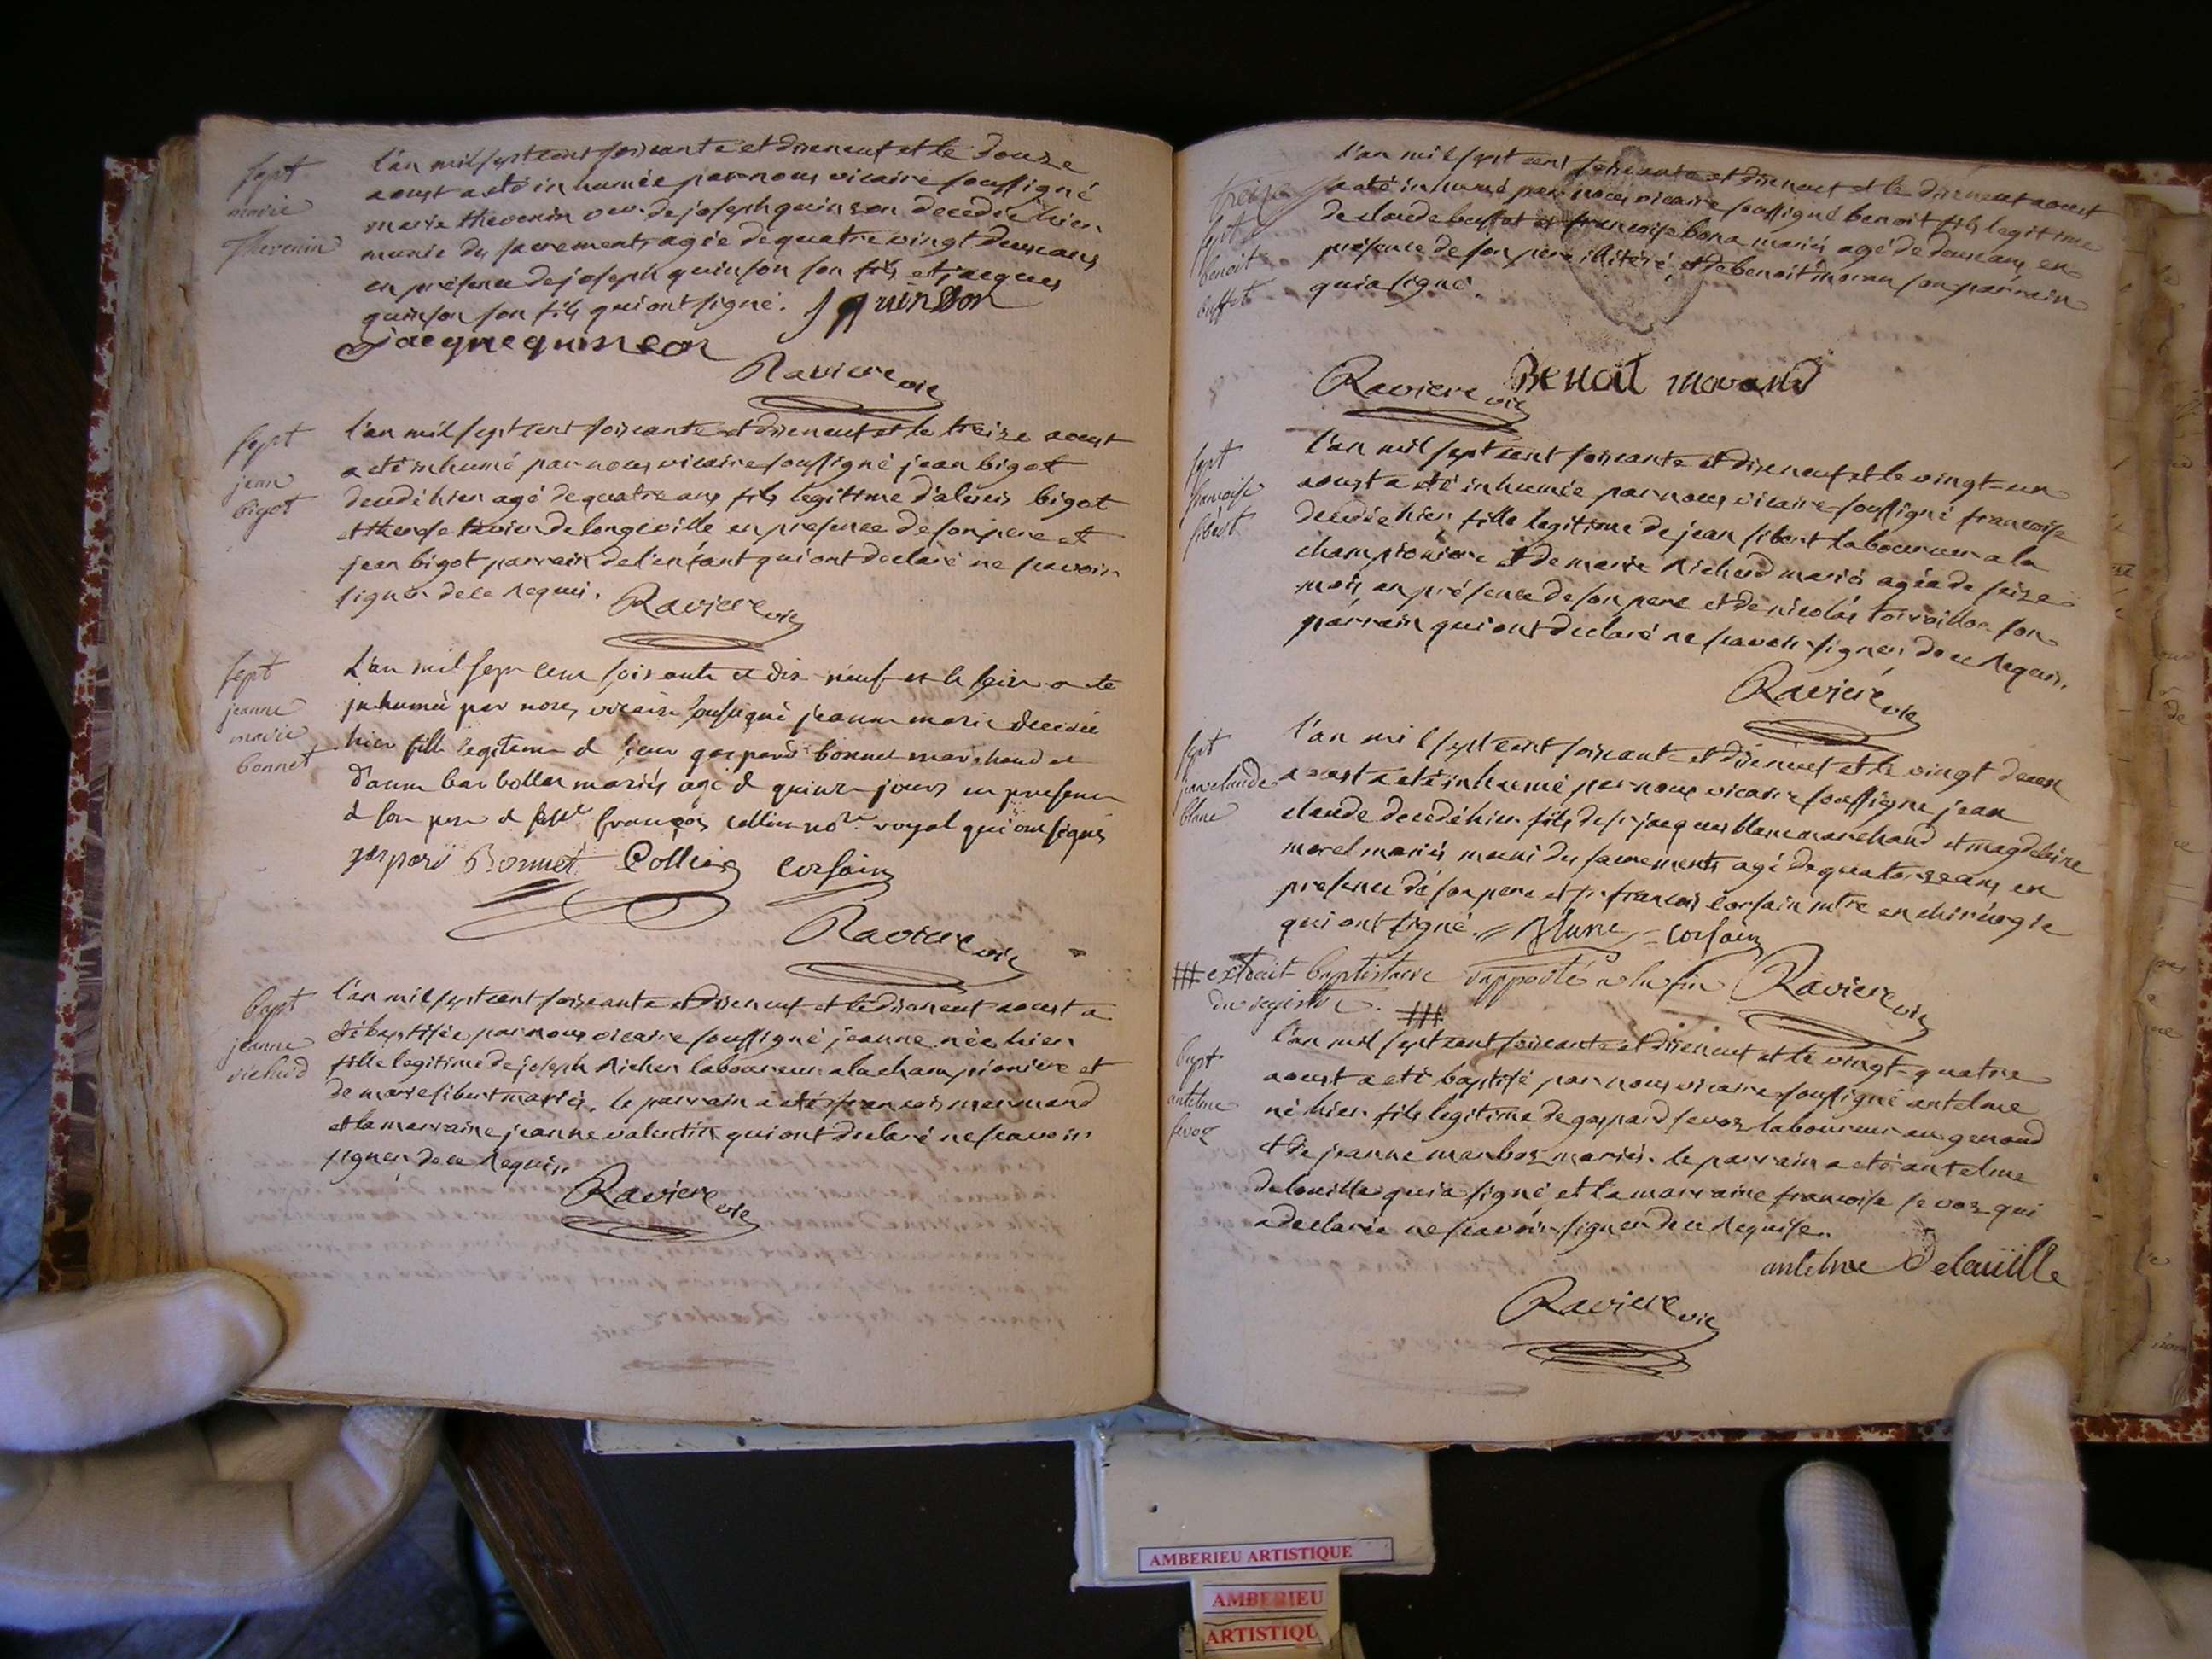 sept
marie
thevenin
l'an mil sept cent soixante et dixneuf et le douze
aoust a eté inhumée par nous vicaire soussigné
marie thevenin veu. de joseph quinson decedée hier
munie des sacrements agée de quatre vingt deux ans
en présence de joseph quinson son fils et jacques
quinson son fils qui ont signé. J quinson
jacque quinson
Raviere vic
sept
jean
bigot
l'an mil sept cent soixante et dixneuf et le treize aoust
a eté inhumé par nous vicaire soussigné jean bigot
decedé hier agé de quatre ans fils legitime d'alexis bigot
et de longeville en presence de son pere et
jean bigot parrain de l'enfant qui ont declaré ne scavoir
signer de ce requis.
Raviere vic
sept
jeanne
marie
bonnet
L'an mil sept cent soixante et dix neuf et le seize a ete
inhumée par nous vicaire soussigné jeanne marie decedée
hier fille legitime de gaspard bonnet marchand et
d'anne barbollat mariés agé de quinze jours en presence
de son pere et françois collier no.re royal qui ont signés
gaspard Bonnet Collier Corsain
Raviere vic
bapt
jeanne
richerd
l'an mil sept cent soixante et dixneuf et le dixneuf aoust a
été baptisée par nous vicaire soussigné jeanne née hier
fille legitime de joseph Richer laboureur a la championiere et
de marie sibert mariés. le parrain a eté francois mermand
et la marraine jeanne valentin qui ont declaré ne scavoir
signer de ce requis.
Raviere vic
treize
sept
benoit
buffet
l'an mil sept cent soixante et dixneuf et le dixneuf aoust
a eté inhumé par nous vicaire soussigné benoit fils legitime
de claude buffet et francoise bona mariés agé de deux ans en
présence de son pere illiteré, et de benoit moran son parrain
qui a signé.
Raviere vic Benoit morand
sept
francoise
sibert
l'an mil sept cent soixante et dixneuf et le vingt-un
aoust a eté inhumée par nous vicaire soussigné francoise
decedée hier fille legitime de jean sibert laboureur a la
championiere et de marie Richerd mariés agée de seize
mois en présence de son pere et de nicolas son
parrain qui ont declaré ne scavoir signer de ce requis.
Raviere vic
sept
jean claude
blanc
l'an mil sept cent soixante et dixneuf et le vingt deux
aoust a eté inhumé par nous vicaire soussigné jean
claude decedé hier fils de sr jacques blanc marchand et magdeleine
morel mariés muni des sacrements agé de quatorze ans en
presence de son pere et sr francois corsain mtre en chirurgie
qui ont signé. Blanc corsain
extrait baptistaire rapporté a la fin
du registre.
Raviere vic
bapt
antelme
sevoz
l'an mil sept cent soixante et dixneuf et le vingt-quatre
aoust a eté baptisé par nous vicaire soussigné antelme
né hier fils legitime de gaspard sevoz laboureur en genoud
et de jeanne manboz mariés. le parrain a eté antelme
delouille qui a signé et la marraine francoise sevoz qui
a declarée ne scavoir signer de ce requise.
antelme Delouille
Raviere vic
AMBERIEU ARTISTIQUE
AMBERIEU
ARTISTIQU